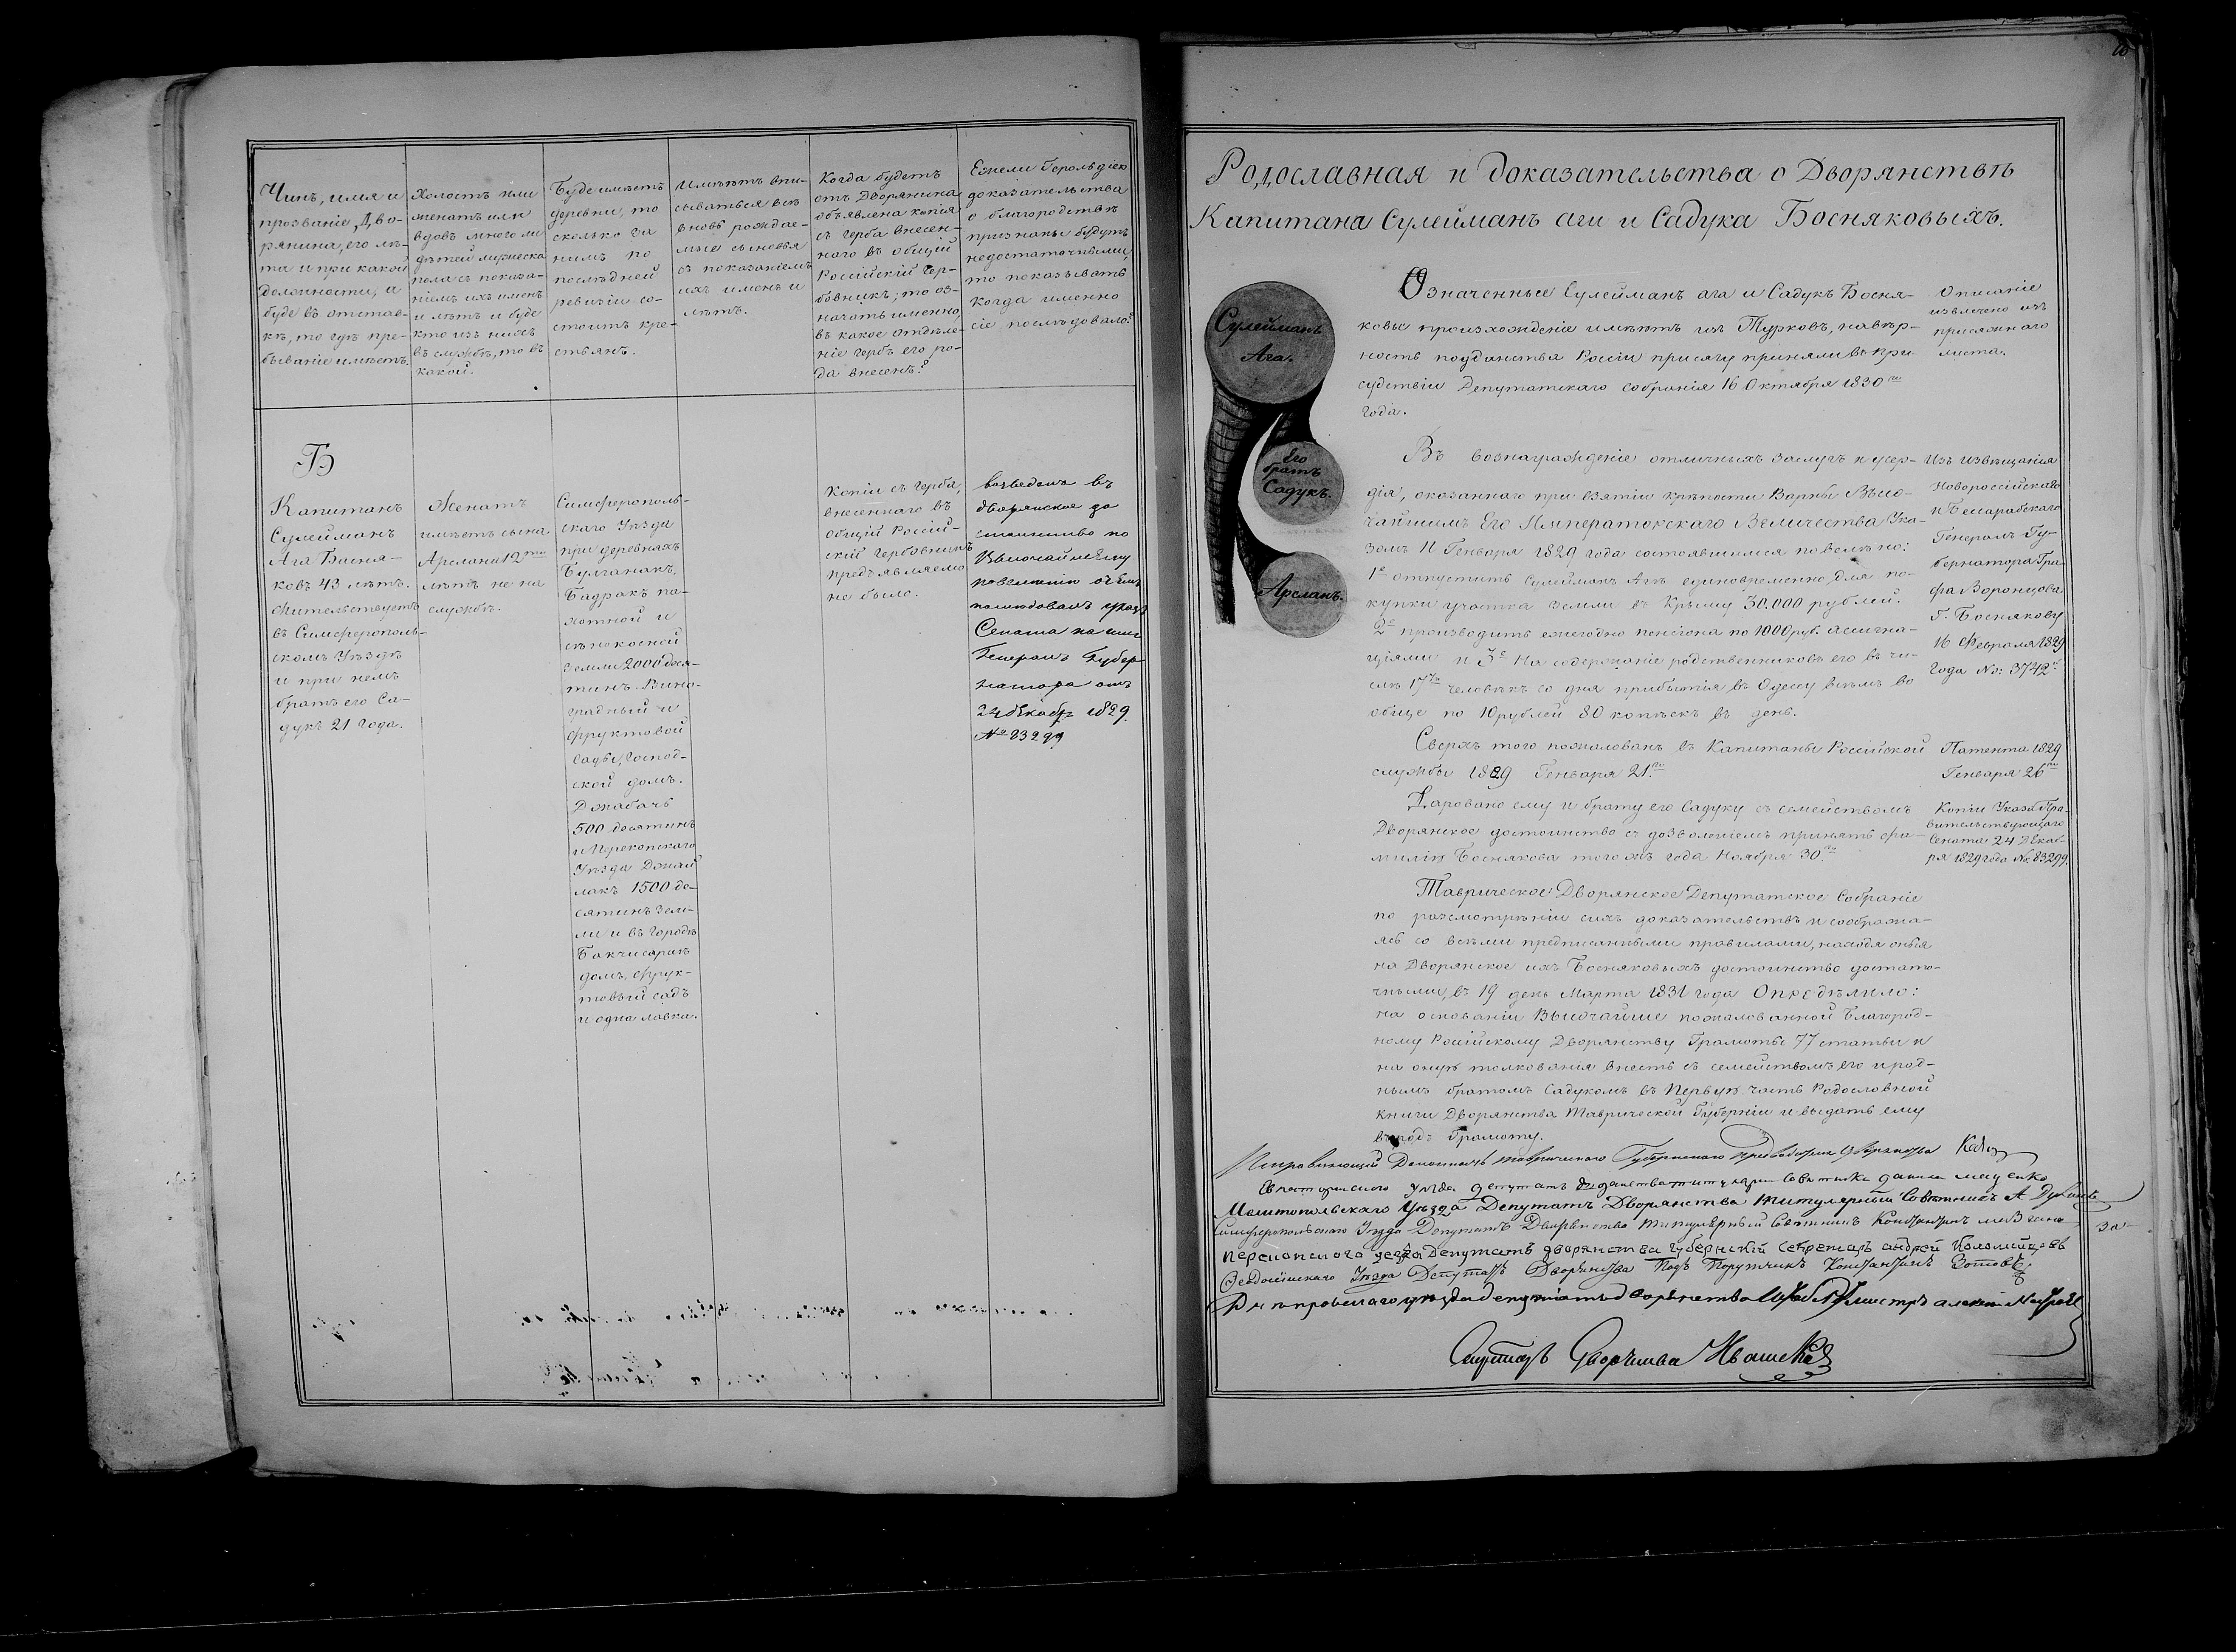 Чинъ, имя и
прозваніе, Дво-
рянина, его лѣ-
та и при какой
должности, а
буде въ отстав-
кѣ, то гдѣ пре-
бываніе имѣетъ.
Холостъ или
женатъ или
вдовъ много ли
дѣтей мужеска
пола съ показа-
ніемъ ихъ именъ
и лѣтъ и буде
кто изъ нихъ
въ службѣ, то въ
какой.
Буде имѣетъ
деревни, то
сколько за
нимъ по
послѣдней
ревизіи со-
стоитъ кре-
стьянъ.
Имѣютъ впи-
сываться всѣ
вновь рождае-
мые сыновья
съ показаніемъ
ихъ именъ и
лѣтъ.
Когда будетъ
отъ Дворянина
объявлена копія
съ герба внесен-
наго въ общій
Россійскій Гер-
бовникъ; то оз-
начать именно
въ какое отдѣле-
ніе гербъ его ро-
да внесенъ?
Ежели Герольдіею
доказательства
о благородствѣ
признаны будутъ
недостаточными,
то показывать
когда именно
сіе послѣдовало?
Б
Капитанъ
Сулейманъ
Ага Босня-
ковъ 43 лѣтъ.
жительствуетъ
въ Симферополь-
скомъ Уѣздѣ
и при немъ
братъ его Са-
дукъ 21 года.
Женатъ
имѣетъ сына
Арслана 12ти
лѣтъ не на
службѣ.
Симферополь-
скаго Уѣзда
при деревняхъ
Булганакъ,
Бадракъ па-
хотной и
сѣнокосной
земли 2000 деся-
тинъ. Вино-
градный и
фруктовой
сады, господ-
ской домъ.
Джабачь
500 десятинъ
и Перекопскаго
Уѣзда Джай
лакъ 1500 де-
сятинъ зем-
ли и въ городѣ
Бакчисараѣ
домъ, фрук-
товый садъ
и одна лавка.
Копіи съ герба,
внесеннаго въ
общій Россій-
скій гербовникъ
предъявляемо
не было.
возведенъ въ
дворянское до
стоинство по
Высочайшему
повелѣнію о чемъ
послѣдовалъ указъ
Сената на имя
Генералъ Губер
натора отъ
24 декабр 1829
№ 83299
Родославная и доказательства о Дворянствѣ
Капитана Сулейманъ аги и Садука Босняковыхъ.
Сулейманъ
Ага.
Его
братъ
Садукъ.
Арсланъ.
Означенные Сулейманъ ага и Садукъ Босня-
ковы произхожденіе имѣютъ изъ Турковъ, навѣр-
ность подданства Россіи присягу приняли въ при
судствіи Депутатскаго собранія 16 Октября 1830го
года.
Описаніе
извлечено изъ
присяжнаго
листа.
Въ вознагражденіе отличныхъ заслугъ и усер-
дія, оказаннаго при взятіи крѣпости Варны Высо-
чайшимъ Его Императорскаго Величества Ука-
зомъ 11 Генваря 1829 года состоявшимся повелѣно:
1е отпустить Сулейманъ Агѣ единовременно, для по-
купки участка земли въ Крыму 30.000 рублей.
2е производить ежегодно пенсіона по 1000 руб. ассигна-
ціями и 3е на содержаніе родственниковъ его въ чи-
слѣ 17ть человѣкъ со дня прибытія въ Одессу всѣмъ во
обще по 10 рублей 80 копѣекъ въ день.
Изъ извѣщанія
Новороссійскаго
и Бессарабскаго
Генералъ Гу-
бернатора Гра-
фа Воронцова
Г. Боснякову
16 Февраля 1829
года №: 3742й
Сверхъ того пожалованъ въ Капитаны Россійской
службы 1829 Генваря 21го
Патента 1829
Генваря 26го
Даровано ему и брату его Садуку съ семействомъ
Дворянское достоинство съ дозволеніемъ принять фа-
милію Боснякова того жъ года Ноября 30го
Копіи Указа Пра-
вительствующаго
Сената 24 Декаб-
ря 1829 года №: 83299.
Таврическое Дворянское Депутатское Собраніе
по разсмотрѣніи сихъ доказательствъ и сообража-
ясь со всѣми предписанными правилами, находя оныя
на Дворянское ихъ Босняковыхъ достоинство достато-
чными, въ 19 день Марта 1831 года Опредѣлило:
на основаніи Высочайше пожалованной Благород-
ному Россійскому Дворянству Грамоты 77 статьи и
на оную толкованія внесть съ семействомъ его и род-
нымъ братомъ Садукомъ въ Первую часть Родословной
книги Дворянства Таврической Губерніи и выдать ему
въ родъ Грамоту.
Исправляющій Должность Таврическаго Губернскаго Предводителя Дворянства
Евпаторійскаго уѣзда депутатъ дворянства титулярный Совѣтникъ
Мелитопольскаго Уѣзда Депутатъ Дворянства Титулярный Совѣтникъ А
Симферопольскаго Уѣзда Депутатъ Дворянства Титулярный Совѣтникъ Константинъ
Перекопскаго уезда Депутатъ дворянства губернскій секретарь андрей Коломийцовъ
Феодосійскаго Уѣзда Депутатъ Дворянства Подъ Порутчикъ Константинъ Зотовъ.
Днѣпровскаго уѣзда депутатъ дворянства
Секретарь Дворянства Ивашенко